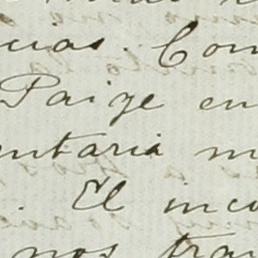 cias. Com
Paige en
ntaria m
. El inco
nos tra